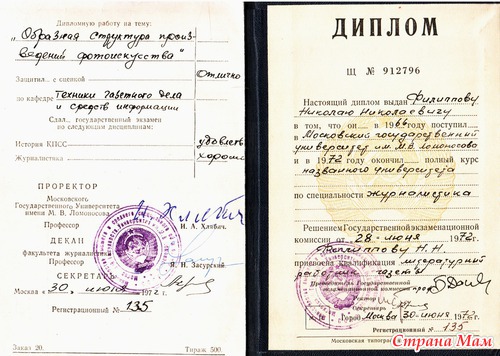 Дипломную работу на тему:
„Образная структура произ-
ведений фотоискусства“
Защитил.. с оценкой Отлично
по кафедре Техники газетного дела
и средств информации
Сдал.. государственный экзамен
по следующим дисциплинам:
История КПСС удовлетв
Журналистика хорошо
ПРОРЕКТОР
Московского
Государственного Университета
имени М. В. Ломоносова
Профессор И. А. Хлябич.
ДЕКАН
факультета журналистики
Профессор Я. Н. Засурский.
СЕКРЕТАРЬ
Москва „ 30 “ июня 1972 г.
Регистрационный № 135
Заказ 20. Тираж 500
ДИПЛОМ
Щ № 912796
Настоящий диплом выдан Филиппову
Николаю Николаевичу
в том, что он в 1966 году поступил
в Московский государственный
университет им. М.В. Ломоносова
и в 1972 году окончил полный курс
названного университета
по специальности журналистика
Решением Государственной экзаменационной
комиссии от „ 28 “ июня 1972 г.
Филиппову Н. Н.
присвоена квалификация литературный
работник газеты
Председатель Государственной
экзаменационной комиссии
Ректор
Секретарь
Город Москва 30 июня 1972 г.
Регистрационный № 135
Московская типография
Страна Мам